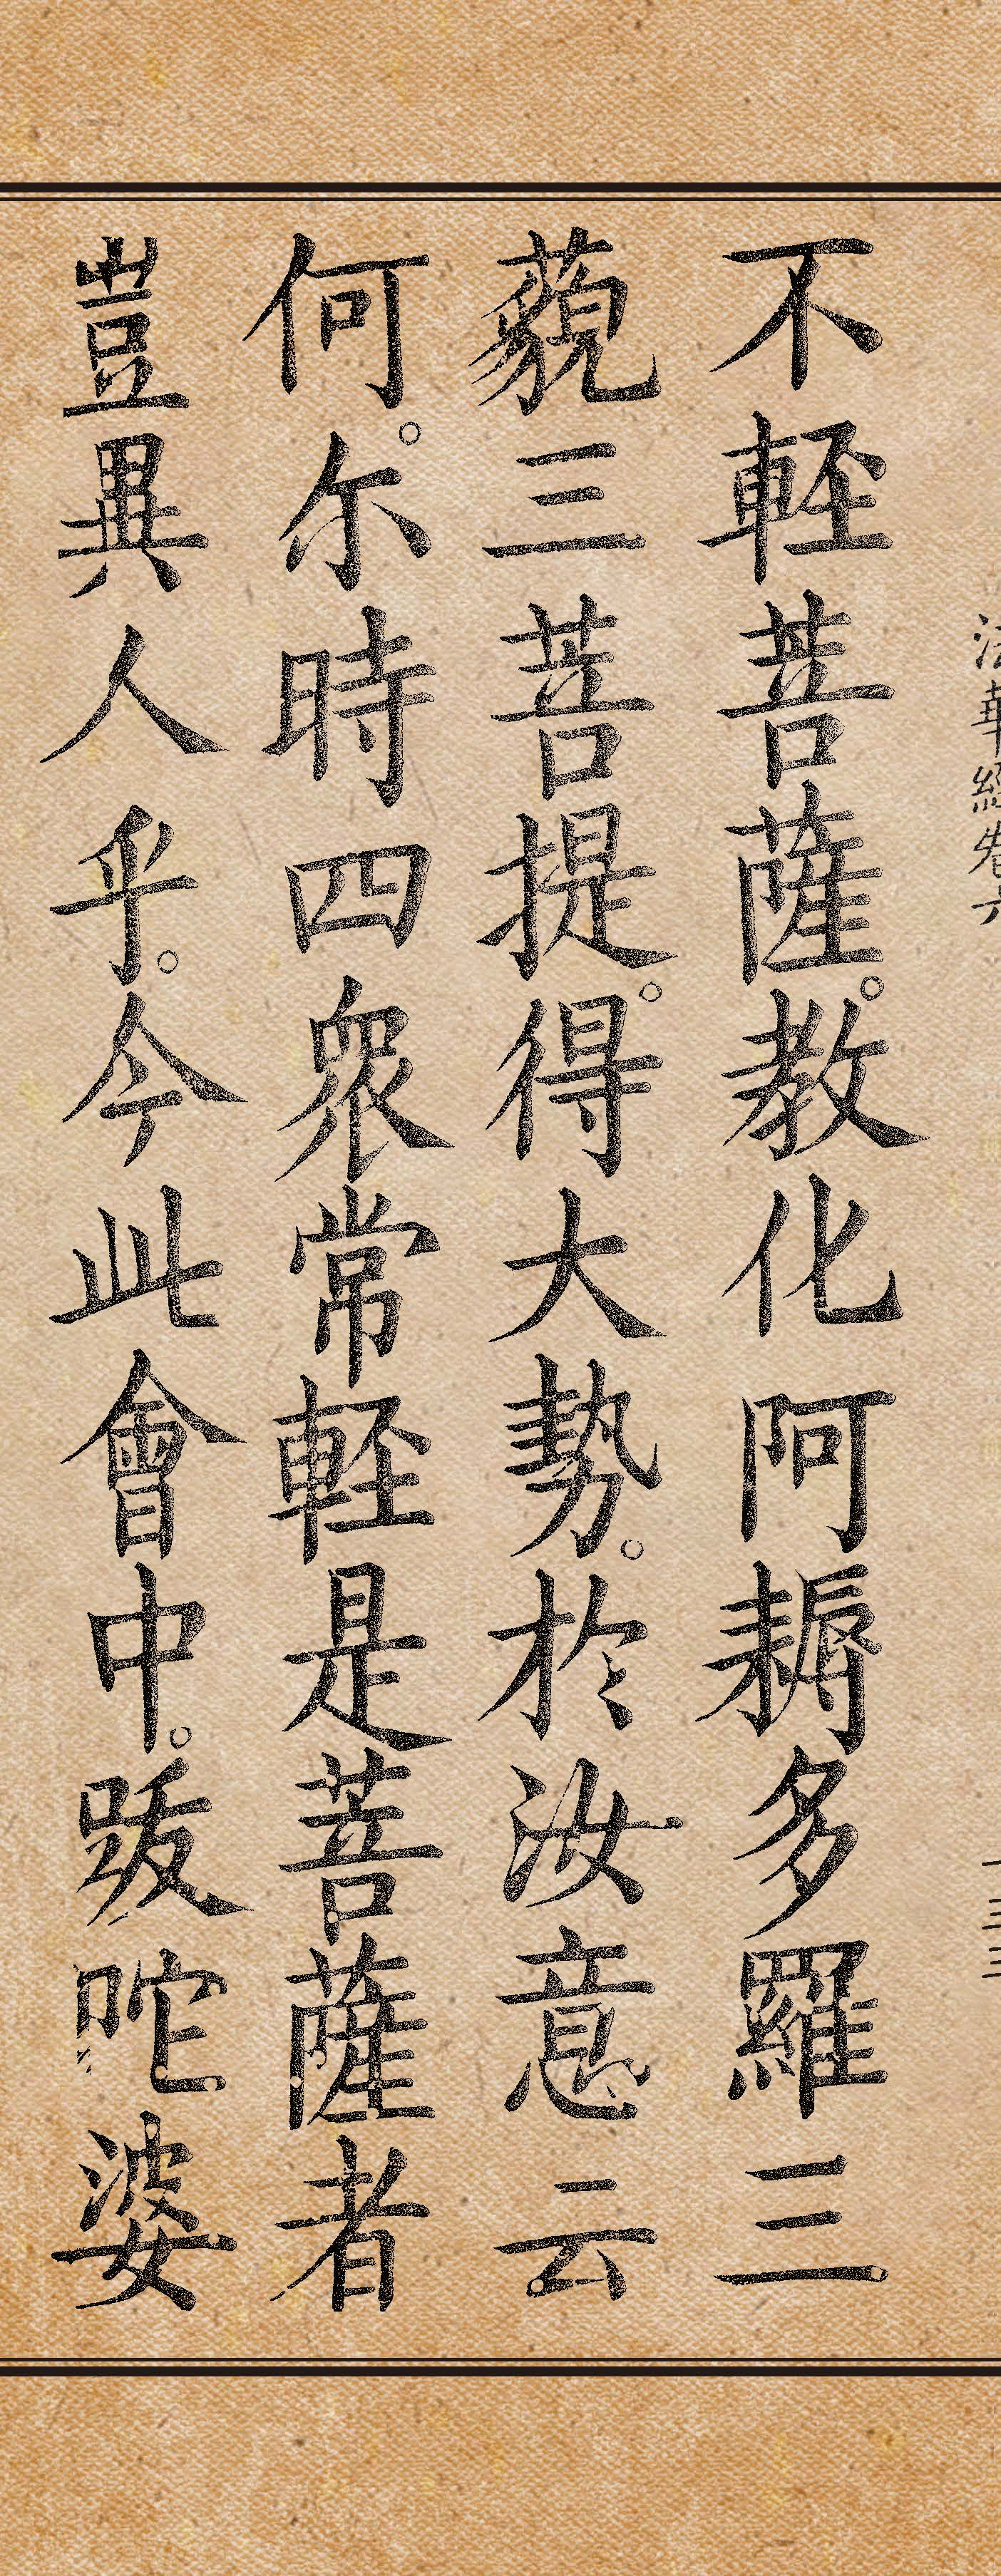 法華經卷六 一三三
不軽菩薩。教化阿耨多羅三
藐三菩提。得大勢。於汝意云
何。尓時四衆常軽是菩薩者
豈異人乎。今此會中。跋陀婆